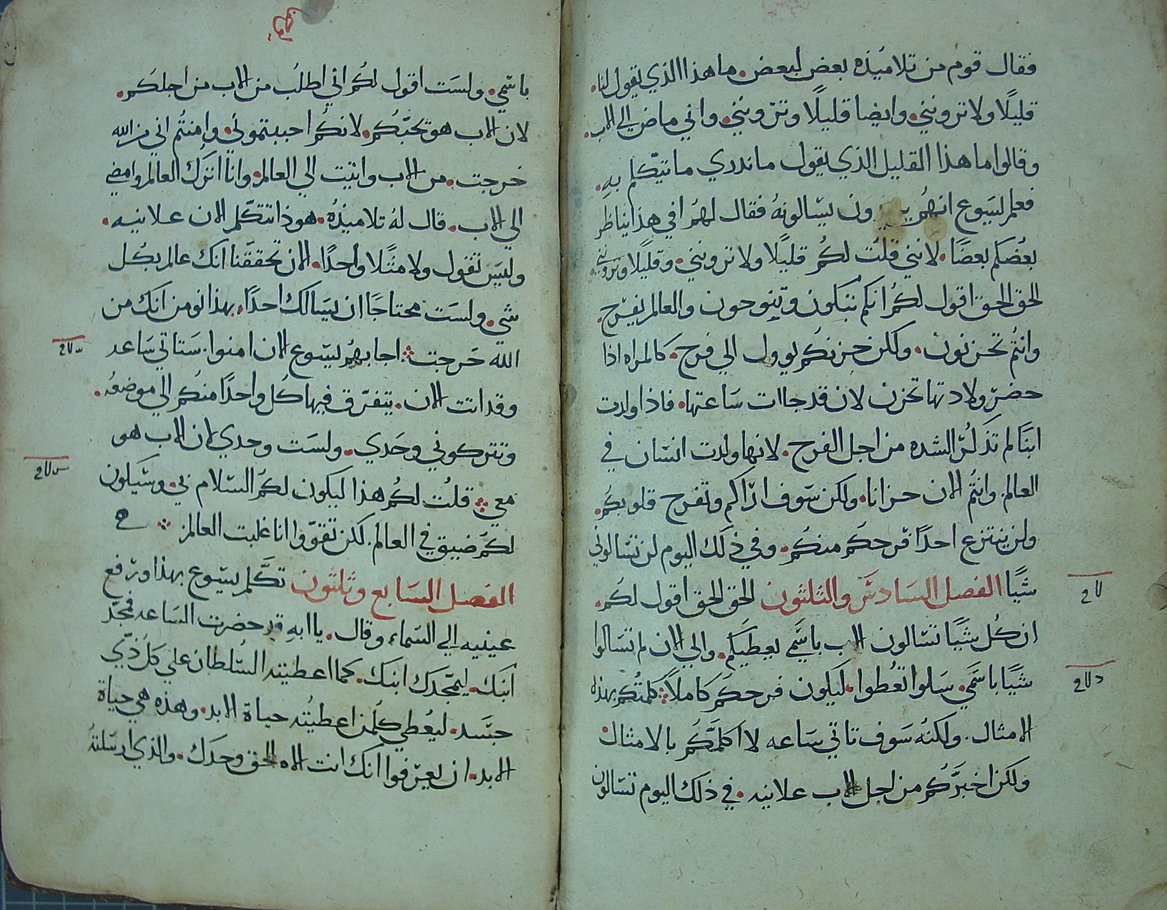 فقال قوم من تلاميذه بعض لبعض. ما هذا الذي يقول لنا.
قليلًا ولا تروني. وايضا قليلًا وتروني. واني ماض الى الاب.
وقالوا ما هذا القليل الذي يقول ما ندري ما يتكلم به.
فعلم يسوع انهم يريدون يسالونه فقال لهم افي هذا يناظر
بعضكم بعضًا. لانني قلت لكم قليلًا ولا تروني. وقليلًا وتروني
الحق الحق اقول لكم انكم تبكون وتنوحون والعالم يفرح.
وانتم تحزنون. ولكن حزنكم يوول الى فرح. كالمراه اذا
حضر ولادتها تحزن لان قد جاات ساعتها. فاذا ولدت
ابنًا لم تذكر الشده من اجل الفرح. لانها ولدت انسان في
العالم. وانتم الان حزانا. ولكن سوف اراكم وتفرح قلوبكم.
ولن ينتزع احدًا فرحكم منكم. وفي ذلك اليوم لن تسالوني
شيًا الفصل السادس والثلثون الحق الحق اقول لكم.
ان كل شيًا تسالون الاب باسمي يعطيكم. والى الان لم تسالوا
شيًا باسمي. سلوا تعطوا. ليكون فرحكم كاملًا. كلمتكم بهذا
الامثال. ولكنه سوف تاتي ساعه لا اكلمكم بالامثال.
ولكن اخبركم من اجل الاب علانيه. في ذلك اليوم تسالون
باسمي. ولست اقول لكم اني اطلب من الاب من اجلكم.
لان الاب هو يحبكم. لانكم احببتموني. وامنتم اني من الله
خرجت. من الاب واتيت الى العالم. وانا اترك العالم وامضي
الى الاب. قال له تلاميذه. هوذا تتكلم الان علانيه.
وليس تقول ولا مثلًا واحدًا. الان تحققنا انك عالم بكل
شي. ولست محتاجًا ان يسالك احدًا. بهذا نومن انك من
الله خرجت. اجابهم يسوع الان امنوا. ستاتي ساعه
وقد اتت الان. يتفرق فيها كل واحدًا منكم الى موضعه.
وتتركوني وحدي. ولست وحدي لان الاب هو
معي. قلت لكم هذا ليكون لكم السلام بي. وسيكون
لكم ضيق في العالم. لكن تقووا انا غلبت العالم.
الفصل السابع وثلثون تكلم يسوع بهذا ورفع
عينيه الى السماء وقال. يا ابه قد حضرت الساعه فمجد
ابنك. ليمجدك ابنك. كما اعطيته السلطان على كل ذي
جسد. ليعطي كلمن اعطيته حياة الابد. وهذه هي حياة
الابد. ان يعرفوا انك انت الاه الحق وحدك. والذي ارسلته